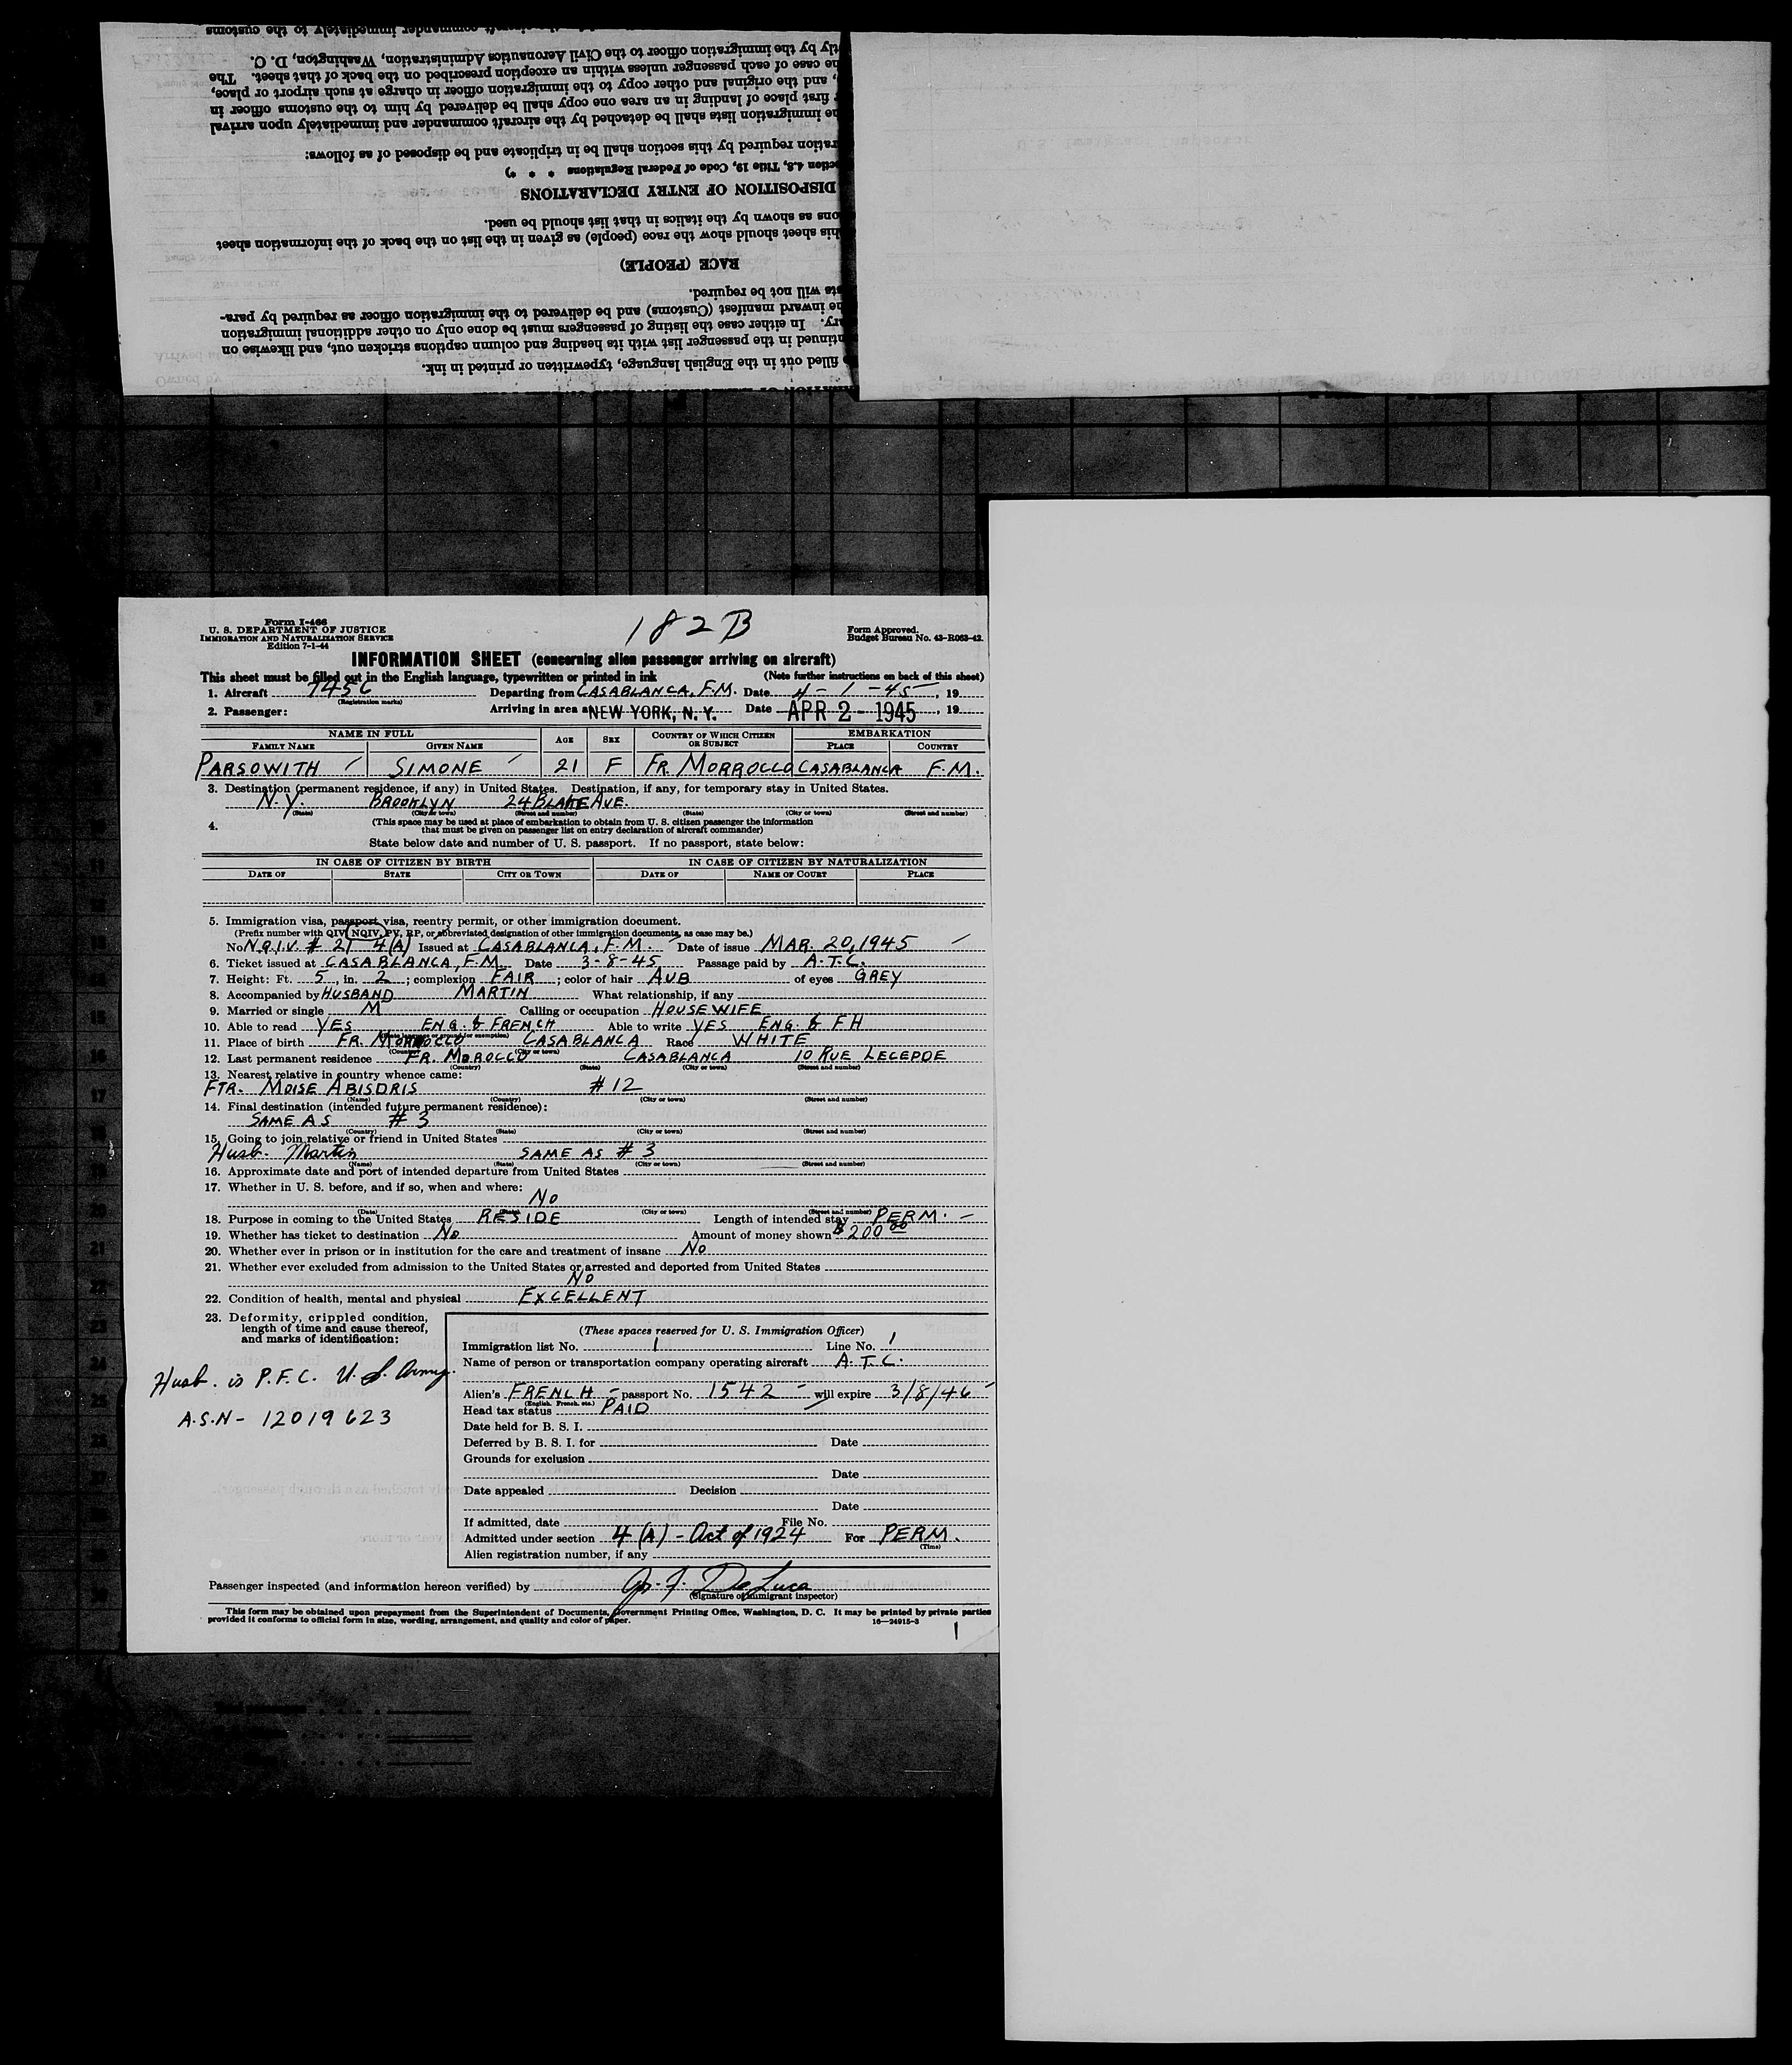 tly by the immigration officer to the Civil Aeronautics Administration, Washington, D. C.
he case of each passenger unless within an exception prescribed on the back of that sheet. The
, and the original and other copy to the immigration officer in charge at such airport or place,
r first place of landing in an area one copy shall be delivered by him to the customs officer in
he immigration lists shall be detached by the aircraft commander and immediately upon arrival
ration required by this section shall be in triplicate and be disposed of as follows:
ction 4.8, Title 19, Code of Federal Regulations * * *)
DISPOSITION OF ENTRY DECLARATIONS
ons as shown by the italics in that list should be used.
his sheet should show the race (people) as given in the list on the back of the information sheet
RACE (PEOPLE)
sts will not be required.
he inward manifest (Customs) and be delivered to the immigration officer as required by para-
ary. In either case the listing of passengers must be done only on other additional immigration
ntinued in the passenger list with its heading and column captions stricken out, and likewise on
filled out in the English language, typewritten or printed in ink.
182B
Form I-466
U. S. DEPARTMENT OF JUSTICE
IMMIGRATION AND NATURALIZATION SERVICE
Edition 7-1-44
Form Approved.
Budget Bureau No. 43-R063-42.
INFORMATION SHEET (concerning alien passenger arriving on aircraft)
This sheet must be filled out in the English language, typewritten or printed in ink (Note further instructions on back of this sheet)
1. Aircraft 7456 Departing from CASABLANCA, F.M. Date 4-1-45, 19
(Registration marks)
2. Passenger: Arriving in area at NEW YORK, N. Y. Date APR 2 - 1945, 19
NAME IN FULL AGE SEX COUNTRY OF WHICH CITIZEN OR SUBJECT EMBARKATION
FAMILY NAME GIVEN NAME PLACE COUNTRY
PARSOWITH SIMONE 21 F FR. MORROCCO CASABLANCA F.M.
3. Destination (permanent residence, if any) in United States. Destination, if any, for temporary stay in United States.
N.Y. BROOKLYN 24 BLAKE AVE.
(State) (City or town) (Street and number) (State) (City or town) (Street and number)
4. (This space may be used at place of embarkation to obtain from U. S. citizen passenger the information
that must be given on passenger list on entry declaration of aircraft commander)
State below date and number of U. S. passport. If no passport, state below:
IN CASE OF CITIZEN BY BIRTH IN CASE OF CITIZEN BY NATURALIZATION
DATE OF STATE CITY OR TOWN DATE OF NAME OF COURT PLACE
5. Immigration visa, passport visa, reentry permit, or other immigration document.
(Prefix number with QIV, NQIV, PV, RP, or abbreviated designation of other immigration documents, as case may be.)
No. N.Q.I.V. # 21 4(A) Issued at CASABLANCA, F.M. Date of issue MAR. 20, 1945
6. Ticket issued at CASABLANCA, F.M. Date 3-8-45 Passage paid by A.T.C.
7. Height: Ft. 5, in. 2; complexion FAIR; color of hair AUB of eyes GREY
8. Accompanied by HUSBAND MARTIN What relationship, if any
9. Married or single M Calling or occupation HOUSEWIFE
10. Able to read YES ENG. & FRENCH Able to write YES ENG. & FH
11. Place of birth FR. MOROCCO CASABLANCA Race WHITE
(Country) (City or town)
12. Last permanent residence FR. MOROCCO CASABLANCA 10 RUE LECEPDE
(Country) (State) (City or town) (Street and number)
13. Nearest relative in country whence came:
FTR. MOISE ABISDRIS #12
(Name) (Country) (City or town) (Street and number)
14. Final destination (intended future permanent residence):
SAME AS # 3
(Country) (State) (City or town) (Street and number)
15. Going to join relative or friend in United States
Husb. Martin SAME AS # 3
(Name) (State) (City or town) (Street and number)
16. Approximate date and port of intended departure from United States
17. Whether in U. S. before, and if so, when and where:
No
(Date) (State) (City or town) (Street and number)
18. Purpose in coming to the United States RESIDE Length of intended stay PERM.
19. Whether has ticket to destination No Amount of money shown $200 00
20. Whether ever in prison or in institution for the care and treatment of insane No
21. Whether ever excluded from admission to the United States or arrested and deported from United States
No
22. Condition of health, mental and physical EXCELLENT
23. Deformity, crippled condition,
length of time and cause thereof,
and marks of identification:
Husb. is P.F.C. U.S. Army.
A.S.N- 12019623
(These spaces reserved for U. S. Immigration Officer)
Immigration list No. 1 Line No. 1
Name of person or transportation company operating aircraft A.T.C.
Alien's FRENCH passport No. 1542 will expire 3/8/46
(English, French, etc.)
Head tax status PAID
Date held for B. S. I.
Deferred by B. S. I. for Date
Grounds for exclusion
Date
Date appealed Decision
Date
If admitted, date File No.
Admitted under section 4(A) - Act of 1924 For PERM.
(Time)
Alien registration number, if any
Passenger inspected (and information hereon verified) by De Luca
(Signature of immigrant inspector)
This form may be obtained upon prepayment from the Superintendent of Documents, Government Printing Office, Washington, D. C. It may be printed by private parties
provided it conforms to official form in size, wording, arrangement, and quality and color of paper. 16—24915-3
1